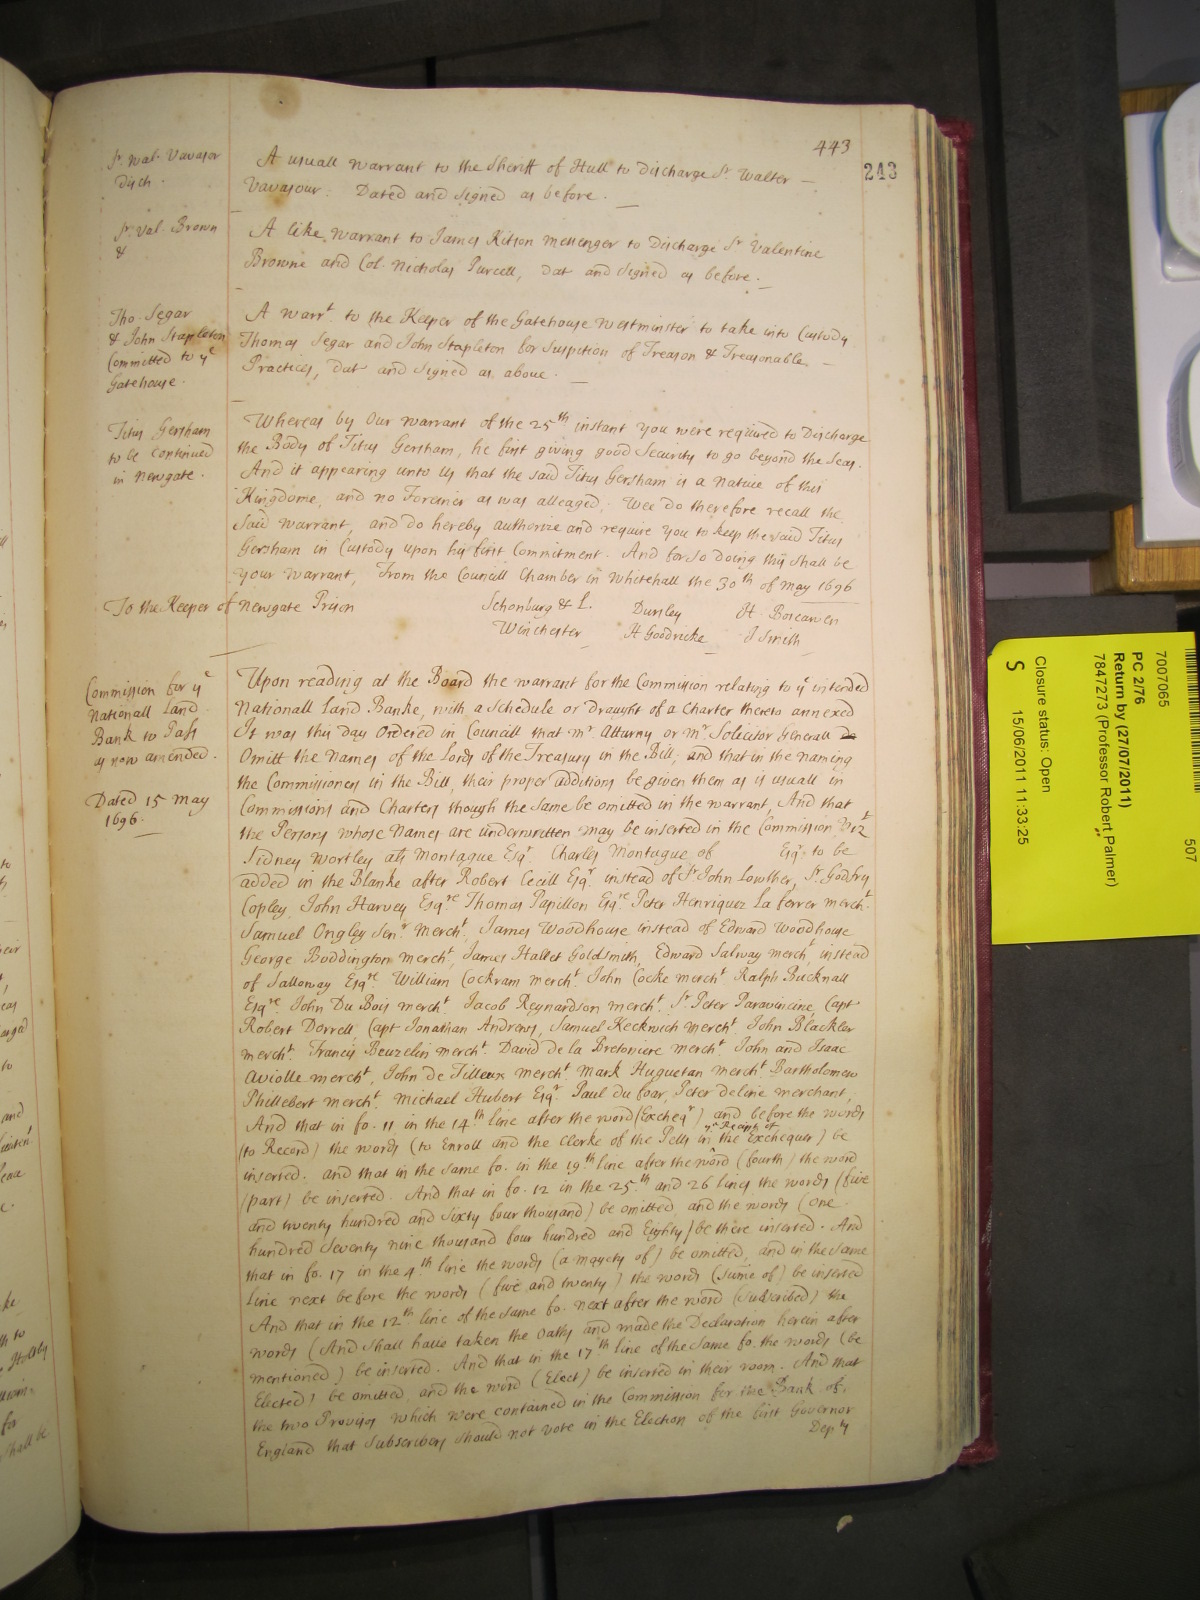 443
243
Sr. Wal. Vavasor
Disch.
A usuall warrant to the Sheriff of Hull to Discharge Sr. Walter
Vavasour. Dated and Signed as before.
Sr. Val. Brown
&
A like warrant to James Kitson Messenger to Discharge Sr. Valentine
Browne and Col. Nicholas Purcell, Dat and Signed as before.
Tho. Segar
& John Stapleton
Committed to ye
Gatehouse.
A Warrt. to the Keeper of the Gatehouse Westminster to take into Custody
Thomas Segar and John Stapleton for Suspition of Treason & Treasonable
Practices, Dat and Signed as above.
Titus Gersham
to be Continued
in Newgate.
Whereas by Our warrant of the 25th instant you were required to Discharge
the Body of Titus Gersham, he first giving good Security to go beyond the Seas.
And it appearing unto Us that the said Titus Gersham is a Native of this
Kingdome, and no Foreiner as was alleaged; Wee do therefore recall the
said warrant, and do hereby authorize and require you to keep the said Titus
Gersham in Custody upon his first Commitment. And for so doing this shall be
your warrant, From the Councill Chamber in Whitehall the 30th of May 1696
To the Keeper of Newgate Prison
Schonburg & L. Dursley H. Boscawen
Winchester H Goodricke J Smith
Commission for ye
Nationall Land
Bank to Pass
as now amended.
Dated 15 May
1696.
Upon reading at the Board the warrant for the Commission relating to ye intended
Nationall Land Banke, with a Schedule or Draught of a Charter thereto annexed
It was this day Ordered in Councill that Mr. Attorny or Mr. Solicitor Generall do
Omitt the Names of the Lords of the Treasury in the Bill, and that in the naming
the Commissioners in the Bill, their proper additions be given them as is usuall in
Commissions and Charters though the same be omitted in the warrant, And that
the Persons whose Names are underwritten may be inserted in the Commission Vizt
Sidney Wortley ats Montague Esqr. Charles Montague of Esqr. to be
added in the Blanke after Robert Cecill Esqr. instead of Sr John Lowther, Sr. Godfry
Copley, John Harvey Esqre Thomas Papillon Esqre Peter Henriquez La ferrer mercht.
Samuel Ongley Senr. mercht, James Woodhouse instead of Edward Woodhouse
George Boddington mercht, James Hallet Goldsmith, Edward Salway mercht, instead
of Salloway Esqre. William Cockram mercht. John Cocke mercht Ralph Bucknall
Esqre. John Du Bois mercht. Jacob Reynardson mercht. Sr Peter Paravincine, Capt
Robert Dorrell, Capt Jonathan Andrews, Samuel Keckwich mercht. John Blackler
mercht. Francis Beuzelin mercht. David de la Bretoniere mercht. John and Isaac
Aviolle mercht, John de Tilleux mercht. Mark Huguetan mercht. Bartholomew
Phillebert mercht. Michael Hubert Esqr. Paul du foar, Peter deline merchant,
And that in fo. 11 in the 14th line after the word (Excheqr) and before the words
(to Record) the words (to Enroll and the Clerke of the Pells in ye Receipt of the Exchequer) be
inserted. and that in the same fo. in the 19th line after the word (fourth) the word
(part) be inserted. And that in fo. 12 in the 25th and 26 lines the words (five
and twenty hundred and Sixty four thousand) be omitted, and the words (one
hundred Seventy nine thousand four hundred and Eighty) be there inserted. And
that in fo. 17 in the 4th line the words (a mayety of) be omitted, and in the same
line next before the words (five and twenty) the words (sume of) be inserted
And that in the 12th line of the same fo. next after the word (Subscribed) the
words (And shall have taken the Oaths and made the Declaration herein after
mentioned) be inserted. And that in the 17th line of the same fo. the words (be
Elected) be omitted, and the word (Elect) be inserted in their room. And that
the two Provisos which were contained in the Commission for the Bank of
England that Subscribers should not vote in the Election of the first Governor
Depty
7007065
507
PC 2/76
Return by (27/07/2011)
7847273 (Professor Robert Palmer)
Closure status: Open
S
15/06/2011 11:33:25